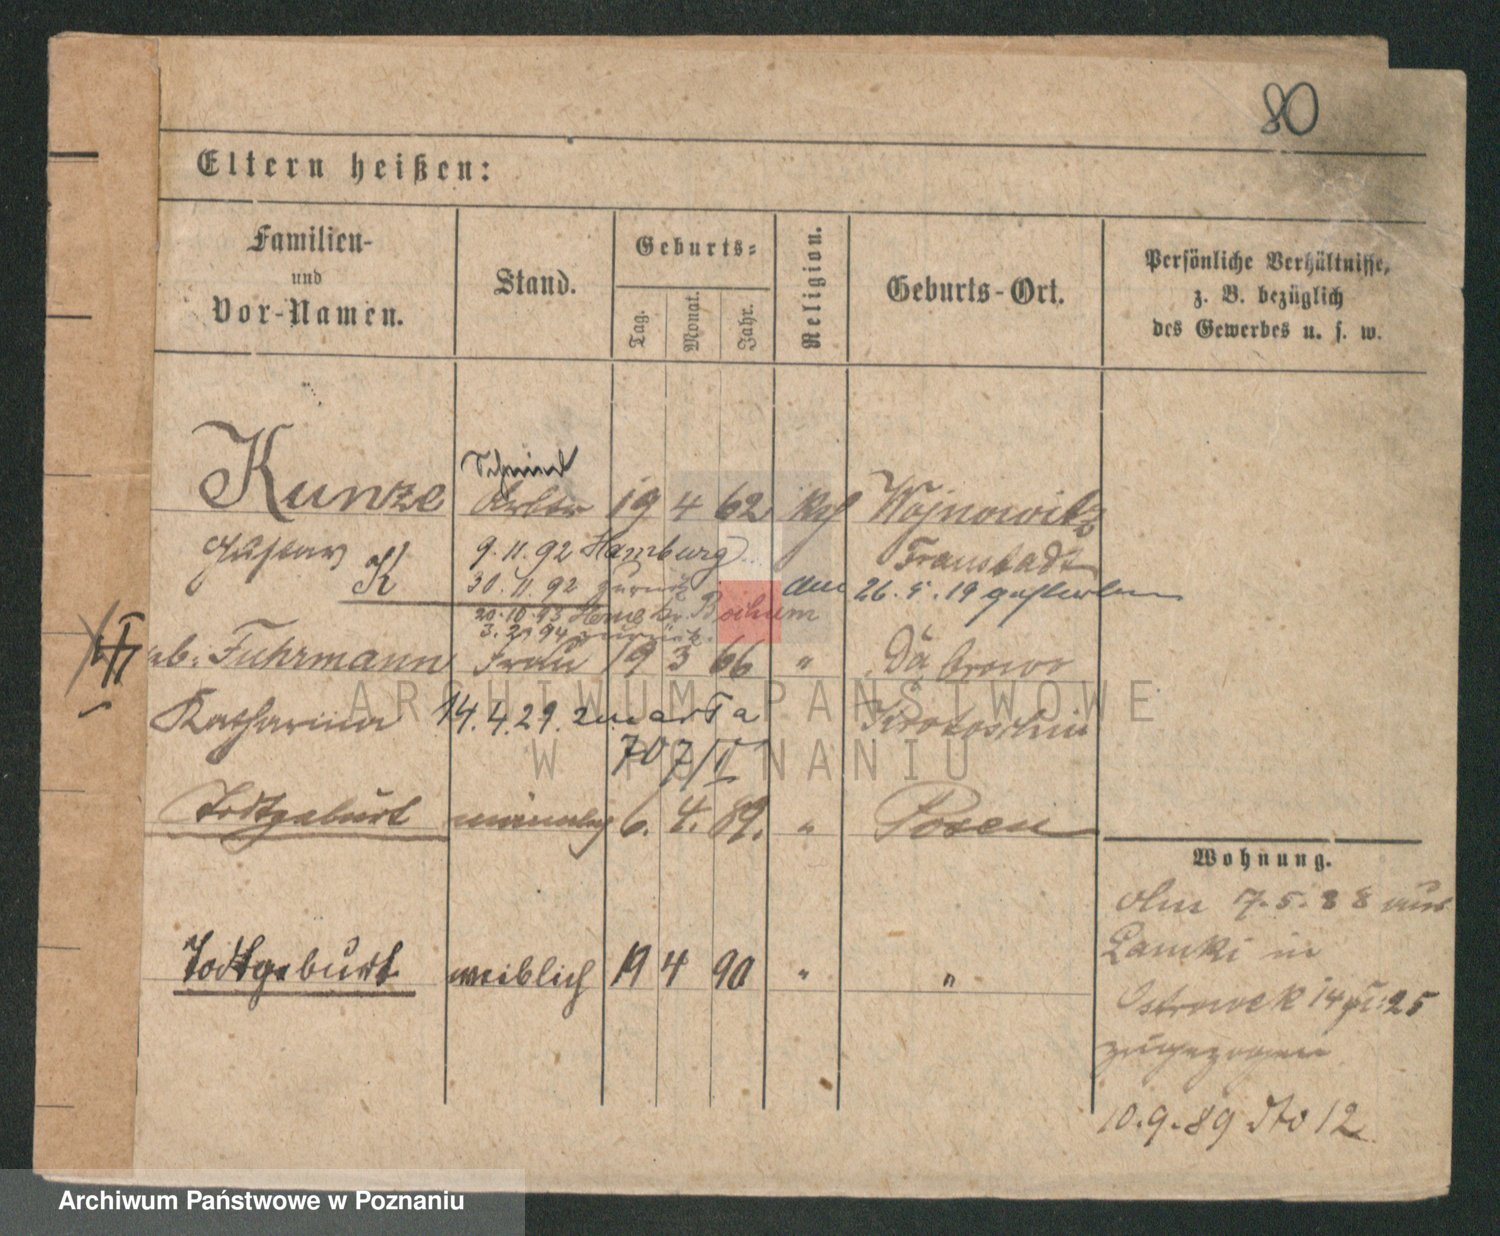 80
Eltern heißen:
Familien-
und
Vor-Namen.
Stand.
Geburts=
Tag.
Monat.
Jahr.
Religion.
Geburts-Ort.
Persönliche Verhältnisse,
z. B. bezüglich
des Gewerbes u. s. w.
Schmied
Kunze 19 4 62 Wojnowitz
Gustav 9.11.92 Hamburg Fraustadt
K 30.11.92 zurück am 26.5.19 gestorben
20.10.93 Bochum
3. 2. 94 zurück.
Fuhrmann Frau 19 3 66 "
Katharina 14.4.29. Krotoschin
70
Todtgeburt männlich 6. 4. 89. " Posen
Wohnung.
7.5.88 aus
Lamki in
Todtgeburt weiblich 19 4 90 " "
Ostrowek 14
zugezogen
10.9.89 dto 12
ARCHIWUM PAŃSTWOWE
W POZNANIU
Archiwum Państwowe w Poznaniu